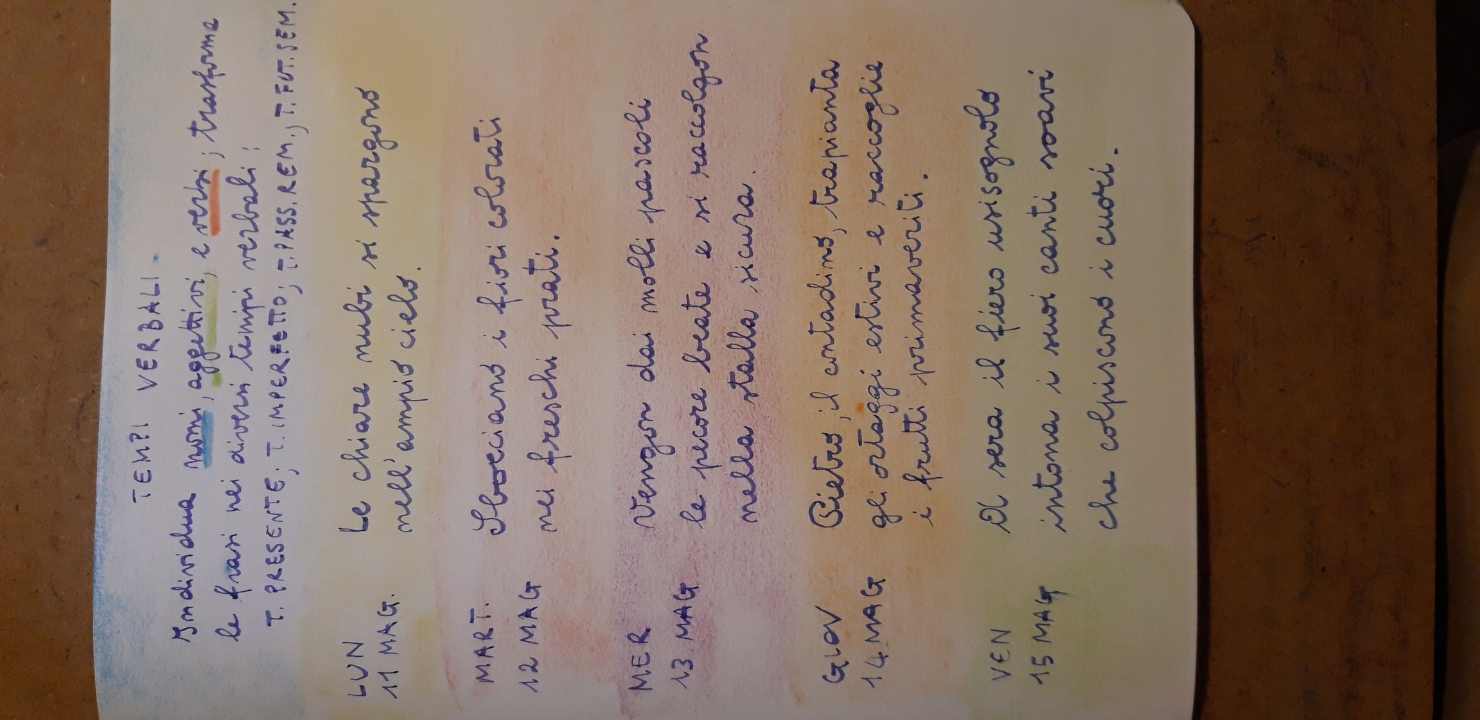 TEMPI VERBALI.
Individua nomi, aggettivi, e verbi; trasforma
le frasi nei diversi tempi verbali:
T. PRESENTE; T. IMPERFETTO; T. PASS. REM., T. FUT. SEM.
LUN Le chiare nubi si spargono
11 MAG. nell'ampio cielo.
MART. Sbocciano i fiori colorati
12 MAG nei freschi prati.
MER Vengon dai molli pascoli
13 MAG. le pecore beate e si raccolgon
nella stalla sicura.
GIOV Pietro, il contadino, trapianta
14 MAG gli ortaggi estivi e raccoglie
i frutti primaverili.
VEN Di sera il fiero usignolo
15 MAG intona i suoi canti soavi
che colpiscono i cuori.